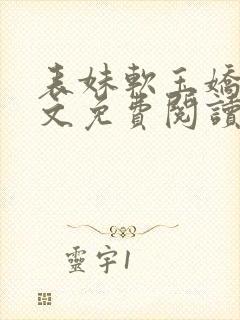 表妹軟玉嬌
文免費閱讀
靈宇1